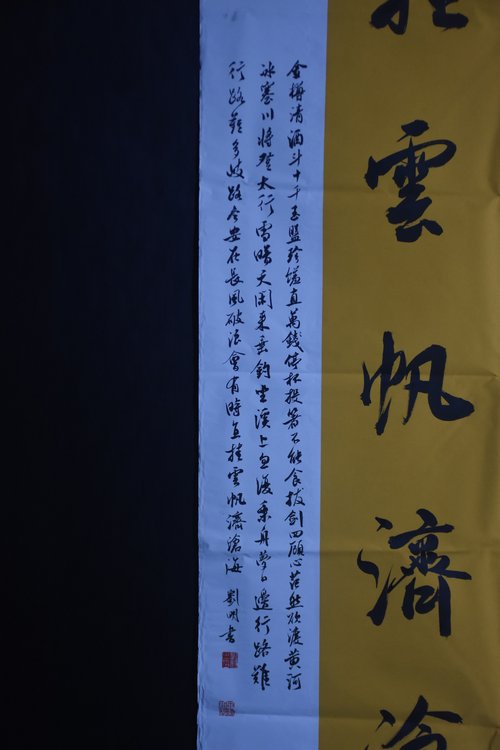 雲帆濟
金樽清酒斗十千玉盤珍饈直萬錢停杯投箸不能食拔劍四顧心茫然欲渡黄河
冰塞川將登太行雪暗天閑來垂釣坐溪上忽復乘舟夢日邊行路難
行路難多歧路今安在長風破浪會有時直挂雲帆濟滄海 劉明書